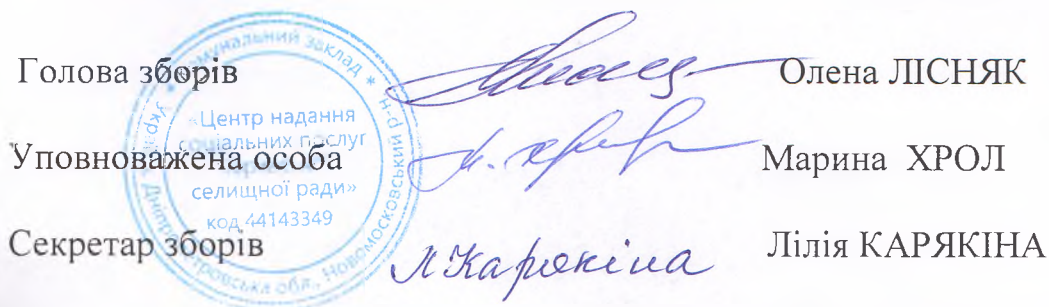 Голова зборів Олена ЛІСНЯК
Уповноважена особа Марина ХРОЛ
Секретар зборів Л Карякіна Лілія КАРЯКІНА
Комунальний заклад * Н-р
«Центр надання
соціальних послуг
селищної ради»
код 44143349
Україна, Дніпропетровська обл., Новомосковський р-н